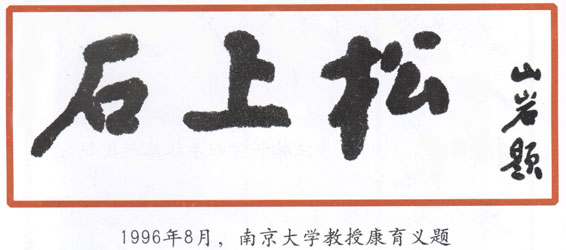 石上松
山岩题
1996年8月，南京大学教授康育义题